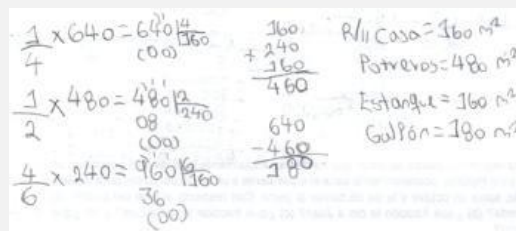 1/4 x 640 = 640 |4
(00) 160
1/2 x 480 = 480 |2
08 240
(00)
4/6 x 240 = 960 |6
36 160
(00)
160
+ 240
160
460
640
- 460
180
R/ll Casa = 160 m²
Potreros = 480 m²
Estanque = 160 m²
Galpón = 180 m²